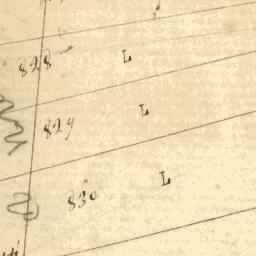 828 L
829 L
830 L